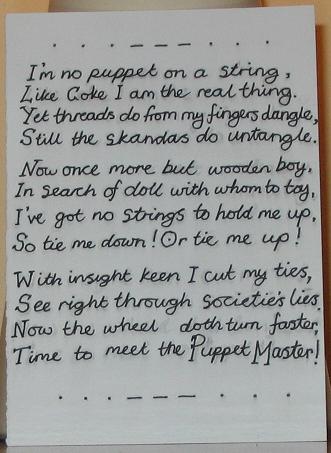 . . . — — — . . .
I'm no puppet on a string,
Like Coke I am the real thing.
Yet threads do from my fingers dangle,
Still the skandas do untangle.
Now once more but wooden boy,
In search of doll with whom to toy,
I've got no strings to hold me up,
So tie me down! Or tie me up!
With insight keen I cut my ties,
See right through societie's lies.
Now the wheel doth turn faster,
Time to meet the Puppet Master!
. . . — — — . . .